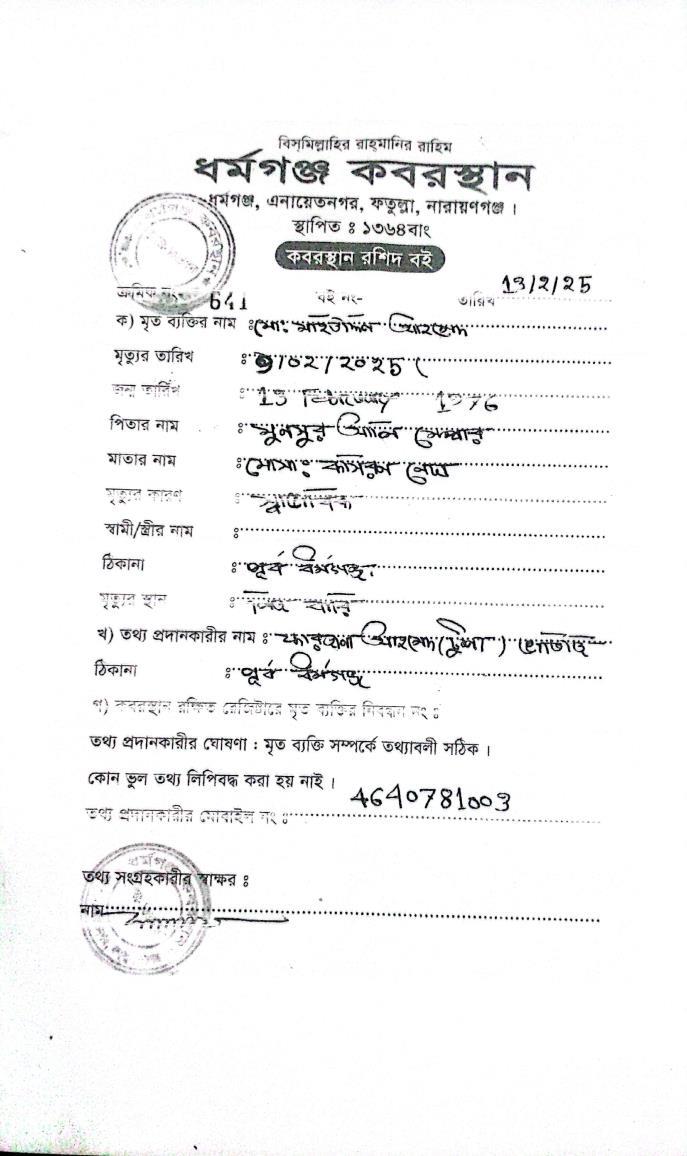 বিস্‌মিল্লাহির রাহ্‌মানির রাহিম
ধর্মগঞ্জ কবরস্থান
ধর্মগঞ্জ, এনায়েতনগর, ফতুল্লা, নারায়ণগঞ্জ ।
স্থাপিত ঃ ১৩৬৪বাং
কবরস্থান রশিদ বই
ক্রমিক নং- 641 বই নং- তারিখ 13/2/25
ক) মৃত ব্যক্তির নাম ঃ মো: মহিউদ্দিন আহমেদ
মৃত্যুর তারিখ ঃ 9/02/2025
জন্ম তারিখ ঃ 13 February 1976
পিতার নাম ঃ মুনসুর আলি মেম্বার
মাতার নাম ঃ মোসা:
মৃত্যুর কারণ ঃ স্বাভাবিক
স্বামী/স্ত্রীর নাম ঃ
ঠিকানা ঃ পূর্ব ধর্মগঞ্জ
মৃত্যুর স্থান ঃ নিজ বাড়ি
খ) তথ্য প্রদানকারীর নাম ঃ ফারহানা আহমেদ
ঠিকানা ঃ পূর্ব ধর্মগঞ্জ
গ) কবরস্থান রক্ষিত রেজিষ্টারে মৃত ব্যক্তির নিবন্ধন নং ঃ
তথ্য প্রদানকারীর ঘোষণা : মৃত ব্যক্তি সম্পর্কে তথ্যাবলী সঠিক ।
কোন ভুল তথ্য লিপিবদ্ধ করা হয় নাই ।
তথ্য প্রদানকারীর মোবাইল নং ঃ 4640781003
তথ্য সংগ্রহকারীর স্বাক্ষর ঃ
নাম